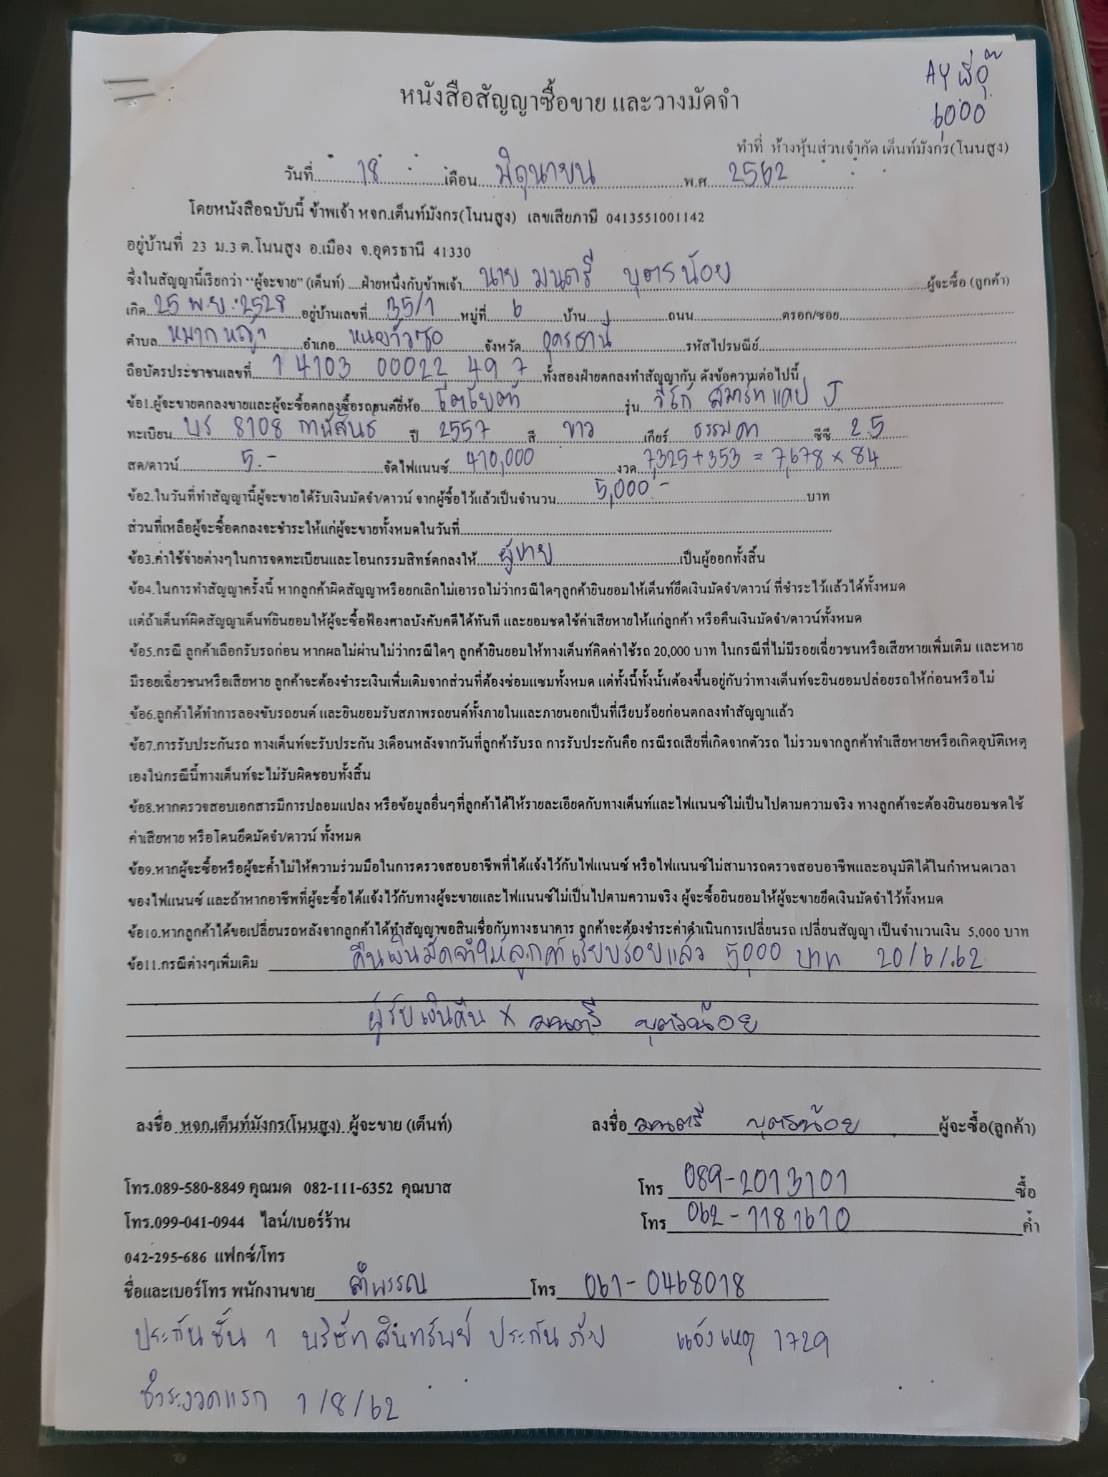 AY พี่อุ๊
6000
หนังสือสัญญาซื้อขาย และวางมัดจำ
ทำที่ ห้างหุ้นส่วนจำกัด เต็นท์มังกร(โนนสูง)
วันที่ 18 เดือน มิถุนายน พ.ศ 2562
โดยหนังสือฉบับนี้ ข้าพเจ้า หจก.เต็นท์มังกร(โนนสูง) เลขเสียภาษี 0413551001142
อยู่บ้านที่ 23 ม.3 ต.โนนสูง อ.เมือง จ.อุดรธานี 41330
ซึ่งในสัญญานี้เรียกว่า "ผู้จะขาย" (เต็นท์) ....ฝ่ายหนึ่งกับข้าพเจ้า นาย มนตรี บุตรน้อย ผู้จะซื้อ (ลูกค้า)
เกิด 25 พ.ย. 2528 อยู่บ้านเลขที่ 35/1 หมู่ที่ 6 บ้าน ถนน ตรอก/ซอย
ตำบล หมากหญ้า อำเภอ หนองวัวซอ จังหวัด อุดรธานี รหัสไปรษณีย์
ถือบัตรประชาชนเลขที่ 1 4103 00022 49 7 ทั้งสองฝ่ายตกลงทำสัญญากัน ดังข้อความต่อไปนี้
ข้อ1.ผู้จะขายตกลงขายและผู้จะซื้อตกลงซื้อรถยนต์ยี่ห้อ โตโยต้า รุ่น วีโก้ สมาร์ทแคป J
ทะเบียน บร 8108 กาฬสินธุ์ ปี 2557 สี ขาว เกียร์ ธรรมดา ซีซี 2.5
สด/ดาวน์ 5.- จัดไฟแนนซ์ 410,000 งวด 7,325+353 = 7,678 × 84
ข้อ2.ในวันที่ทำสัญญานี้ผู้จะขายได้รับเงินมัดจำ/ดาวน์ จากผู้ซื้อไว้แล้วเป็นจำนวน 5,000.- บาท
ส่วนที่เหลือผู้จะซื้อตกลงจะชำระให้แก่ผู้จะขายทั้งหมดในวันที่
ข้อ3.ค่าใช้จ่ายต่างๆในการจดทะเบียนและโอนกรรมสิทธ์ตกลงให้ ผู้ขาย เป็นผู้ออกทั้งสิ้น
ข้อ4.ในการทำสัญญาครั้งนี้ หากลูกค้าผิดสัญญาหรือยกเลิกไม่เอารถไม่ว่ากรณีใดๆลูกค้ายินยอมให้เต็นท์ยึดเงินมัดจำ/ดาวน์ ที่ชำระไว้แล้วได้ทั้งหมด
แต่ถ้าเต็นท์ผิดสัญญาเต็นท์ยินยอมให้ผู้จะซื้อฟ้องศาลบังคับคดีได้ทันที และยอมชดใช้ค่าเสียหายให้แก่ลูกค้า หรือคืนเงินมัดจำ/ดาวน์ทั้งหมด
ข้อ5.กรณี ลูกค้าเลือกรับรถก่อน หากผลไม่ผ่านไม่ว่ากรณีใดๆ ลูกค้ายินยอมให้ทางเต็นท์คิดค่าใช้รถ 20,000 บาท ในกรณีที่ไม่มีรอยเฉี่ยวชนหรือเสียหายเพิ่มเติม และหาย
มีรอยเฉี่ยวชนหรือเสียหาย ลูกค้าจะต้องชำระเงินเพิ่มเติมจากส่วนที่ต้องซ่อมแซมทั้งหมด แต่ทั้งนี้ทั้งนั้นต้องขึ้นอยู่กับว่าทางเต็นท์จะยินยอมปล่อยรถให้ก่อนหรือไม่
ข้อ6.ลูกค้าได้ทำการลองขับรถยนต์ และยินยอมรับสภาพรถยนต์ทั้งภายในและภายนอกเป็นที่เรียบร้อยก่อนตกลงทำสัญญาแล้ว
ข้อ7.การรับประกันรถ ทางเต็นท์จะรับประกัน 3เดือนหลังจากวันที่ลูกค้ารับรถ การรับประกันคือ กรณีรถเสียที่เกิดจากตัวรถ ไม่รวมจากลูกค้าทำเสียหายหรือเกิดอุบัติเหตุ
เองในกรณีนี้ทางเต็นท์จะไม่รับผิดชอบทั้งสิ้น
ข้อ8.หากตรวจสอบเอกสารมีการปลอมแปลง หรือข้อมูลอื่นๆที่ลูกค้าได้ให้รายละเอียดกับทางเต็นท์และไฟแนนซ์ไม่เป็นไปตามความจริง ทางลูกค้าจะต้องยินยอมชดใช้
ค่าเสียหาย หรือโดนยึดมัดจำ/ดาวน์ ทั้งหมด
ข้อ9.หากผู้จะซื้อหรือผู้จะค้ำไม่ให้ความร่วมมือในการตรวจสอบอาชีพที่ได้แจ้งไว้กับไฟแนนซ์ หรือไฟแนนซ์ไม่สามารถตรวจสอบอาชีพและอนุมัติได้ในกำหนดเวลา
ของไฟแนนซ์ และถ้าหากอาชีพที่ผู้จะซื้อได้แจ้งไว้กับทางผู้จะขายและไฟแนนซ์ไม่เป็นไปตามความจริง ผู้จะซื้อยินยอมให้ผู้จะขายยึดเงินมัดจำไว้ทั้งหมด
ข้อ10.หากลูกค้าได้ขอเปลี่ยนรถหลังจากลูกค้าได้ทำสัญญาขอสินเชื่อกับทางธนาคาร ลูกค้าจะต้องชำระค่าดำเนินการเปลี่ยนรถ เปลี่ยนสัญญา เป็นจำนวนเงิน 5,000 บาท
ข้อ11.กรณีต่างๆเพิ่มเติม คืนเงินมัดจำให้ลูกค้าเรียบร้อยแล้ว 5,000 บาท 20/6/62
ผู้รับเงินคืน × มนตรี บุตรน้อย
ลงชื่อ หจก.เต็นท์มังกร(โนนสูง) ผู้จะขาย (เต็นท์) ลงชื่อ มนตรี บุตรน้อย ผู้จะซื้อ(ลูกค้า)
โทร.089-580-8849 คุณมด 082-111-6352 คุณบาส โทร 089-2013101 ซื้อ
โทร.099-041-0944 ไลน์/เบอร์ร้าน โทร 062-1181610 ค้ำ
042-295-686 แฟกซ์/โทร
ชื่อและเบอร์โทร พนักงานขาย ลำพรรณ โทร 061-0468018
ประกันชั้น 1 บริษัท สินทรัพย์ ประกันภัย แจ้งเหตุ 1729
ชำระงวดแรก 1/8/62